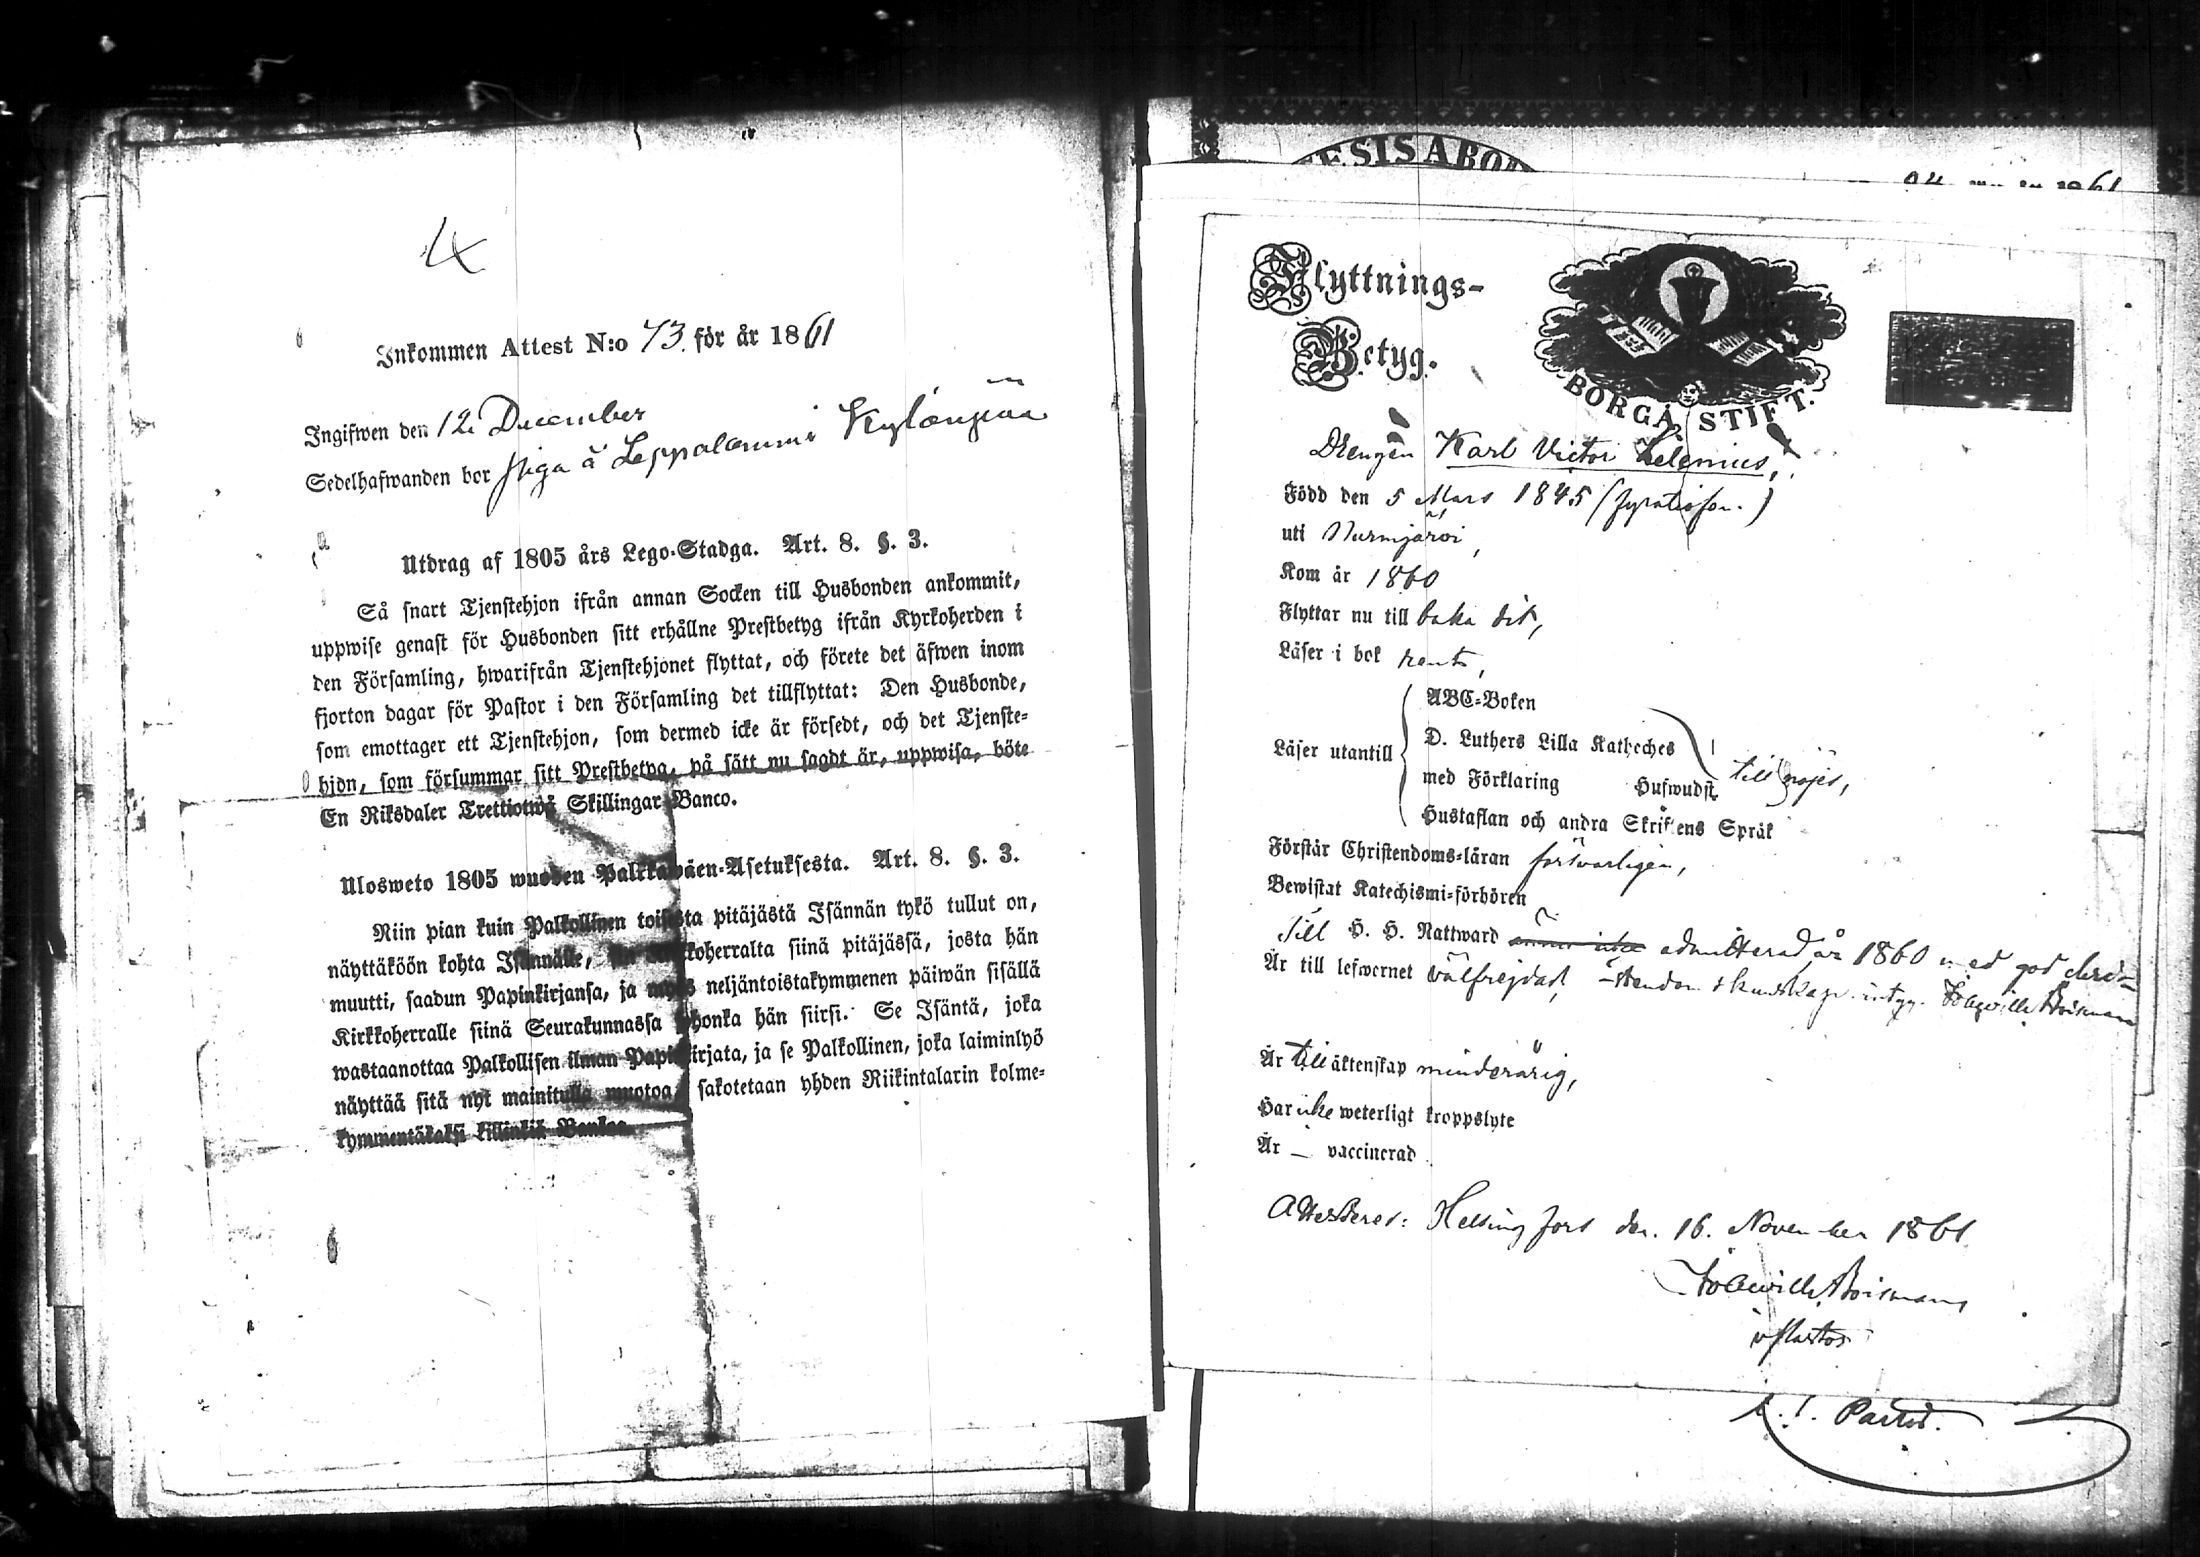 Inkommen Attest N:o 73. för år 1861
Ingifwen den 12 December
Sedelhafwanden bor piga å Leppälammi Kylänpää
Utdrag af 1805 års Lego-Stadga. Art. 8. §. 3.
Så snart Tjenstehjon ifrån annan Socken till Husbonden ankommit,
uppwise genast för Husbonden sitt erhållne Prestbetyg ifrån Kyrkoherden i
den Församling, hwarifrån Tjenstehjonet flyttat, och förete det äfwen inom
fjorton dagar för Pastor i den Församling det tillflyttat: Den Husbonde,
som emottager ett Tjenstehjon, som dermed icke är försedt, och det Tjenste-
hjon, som försummar sitt Prestbetyg, på sätt nu sagdt är, uppwisa, böte
En Riksdaler Trettiotwå Skillingar Banco.
Ulosweto 1805 wuoden Palkkawäen-Asetuksesta. Art. 8. §. 3.
Niin pian kuin Palkollinen toisesta pitäjästä Isännän tykö tullut on,
näyttäköön kohta Isännälle, Kirkkoherralta siinä pitäjässä, josta hän
muutti, saadun Papinkirjansa, ja myös neljäntoistakymmenen päiwän sisällä
Kirkkoherralle siinä Seurakunnassa johonka hän siirsi. Se Isäntä, joka
wastaanottaa Palkollisen ilman Papinkirjata, ja se Palkollinen, joka laiminlyö
näyttää sitä nyt mainitulla muotoa, sakotetaan yhden Riikintalarin kolme-
kymmentäkaksi killinkiä Bankoa.
1861
Flyttnings-
Betyg.
BORGÅ STIFT.
Drengen Karl Victor Helenius,
Född den 5 Mars 1845
uti Nurmijärvi,
Kom år 1860
Flyttar nu till baka dit,
Läser i bok rent,
Läser utantill
ABC-Boken
D. Luthers Lilla Katheches
med Förklaring Hufwudst.
Hustaflan och andra Skriftens Språk
till nöjes,
Förstår Christendoms-läran försvarligen,
Bewistat Katechismi-förhören
Till H. H. Nattward admitterad år 1860 med god christ-
Är till lefwernet välfrejdad, endomskunskap intyg.
Är till äktenskap minderårig,
Har icke weterligt kroppslyte
Är — vaccinerad
Attesteres: Helsingfors den 16. November 1861
v Pastor
v. t. Pastor.